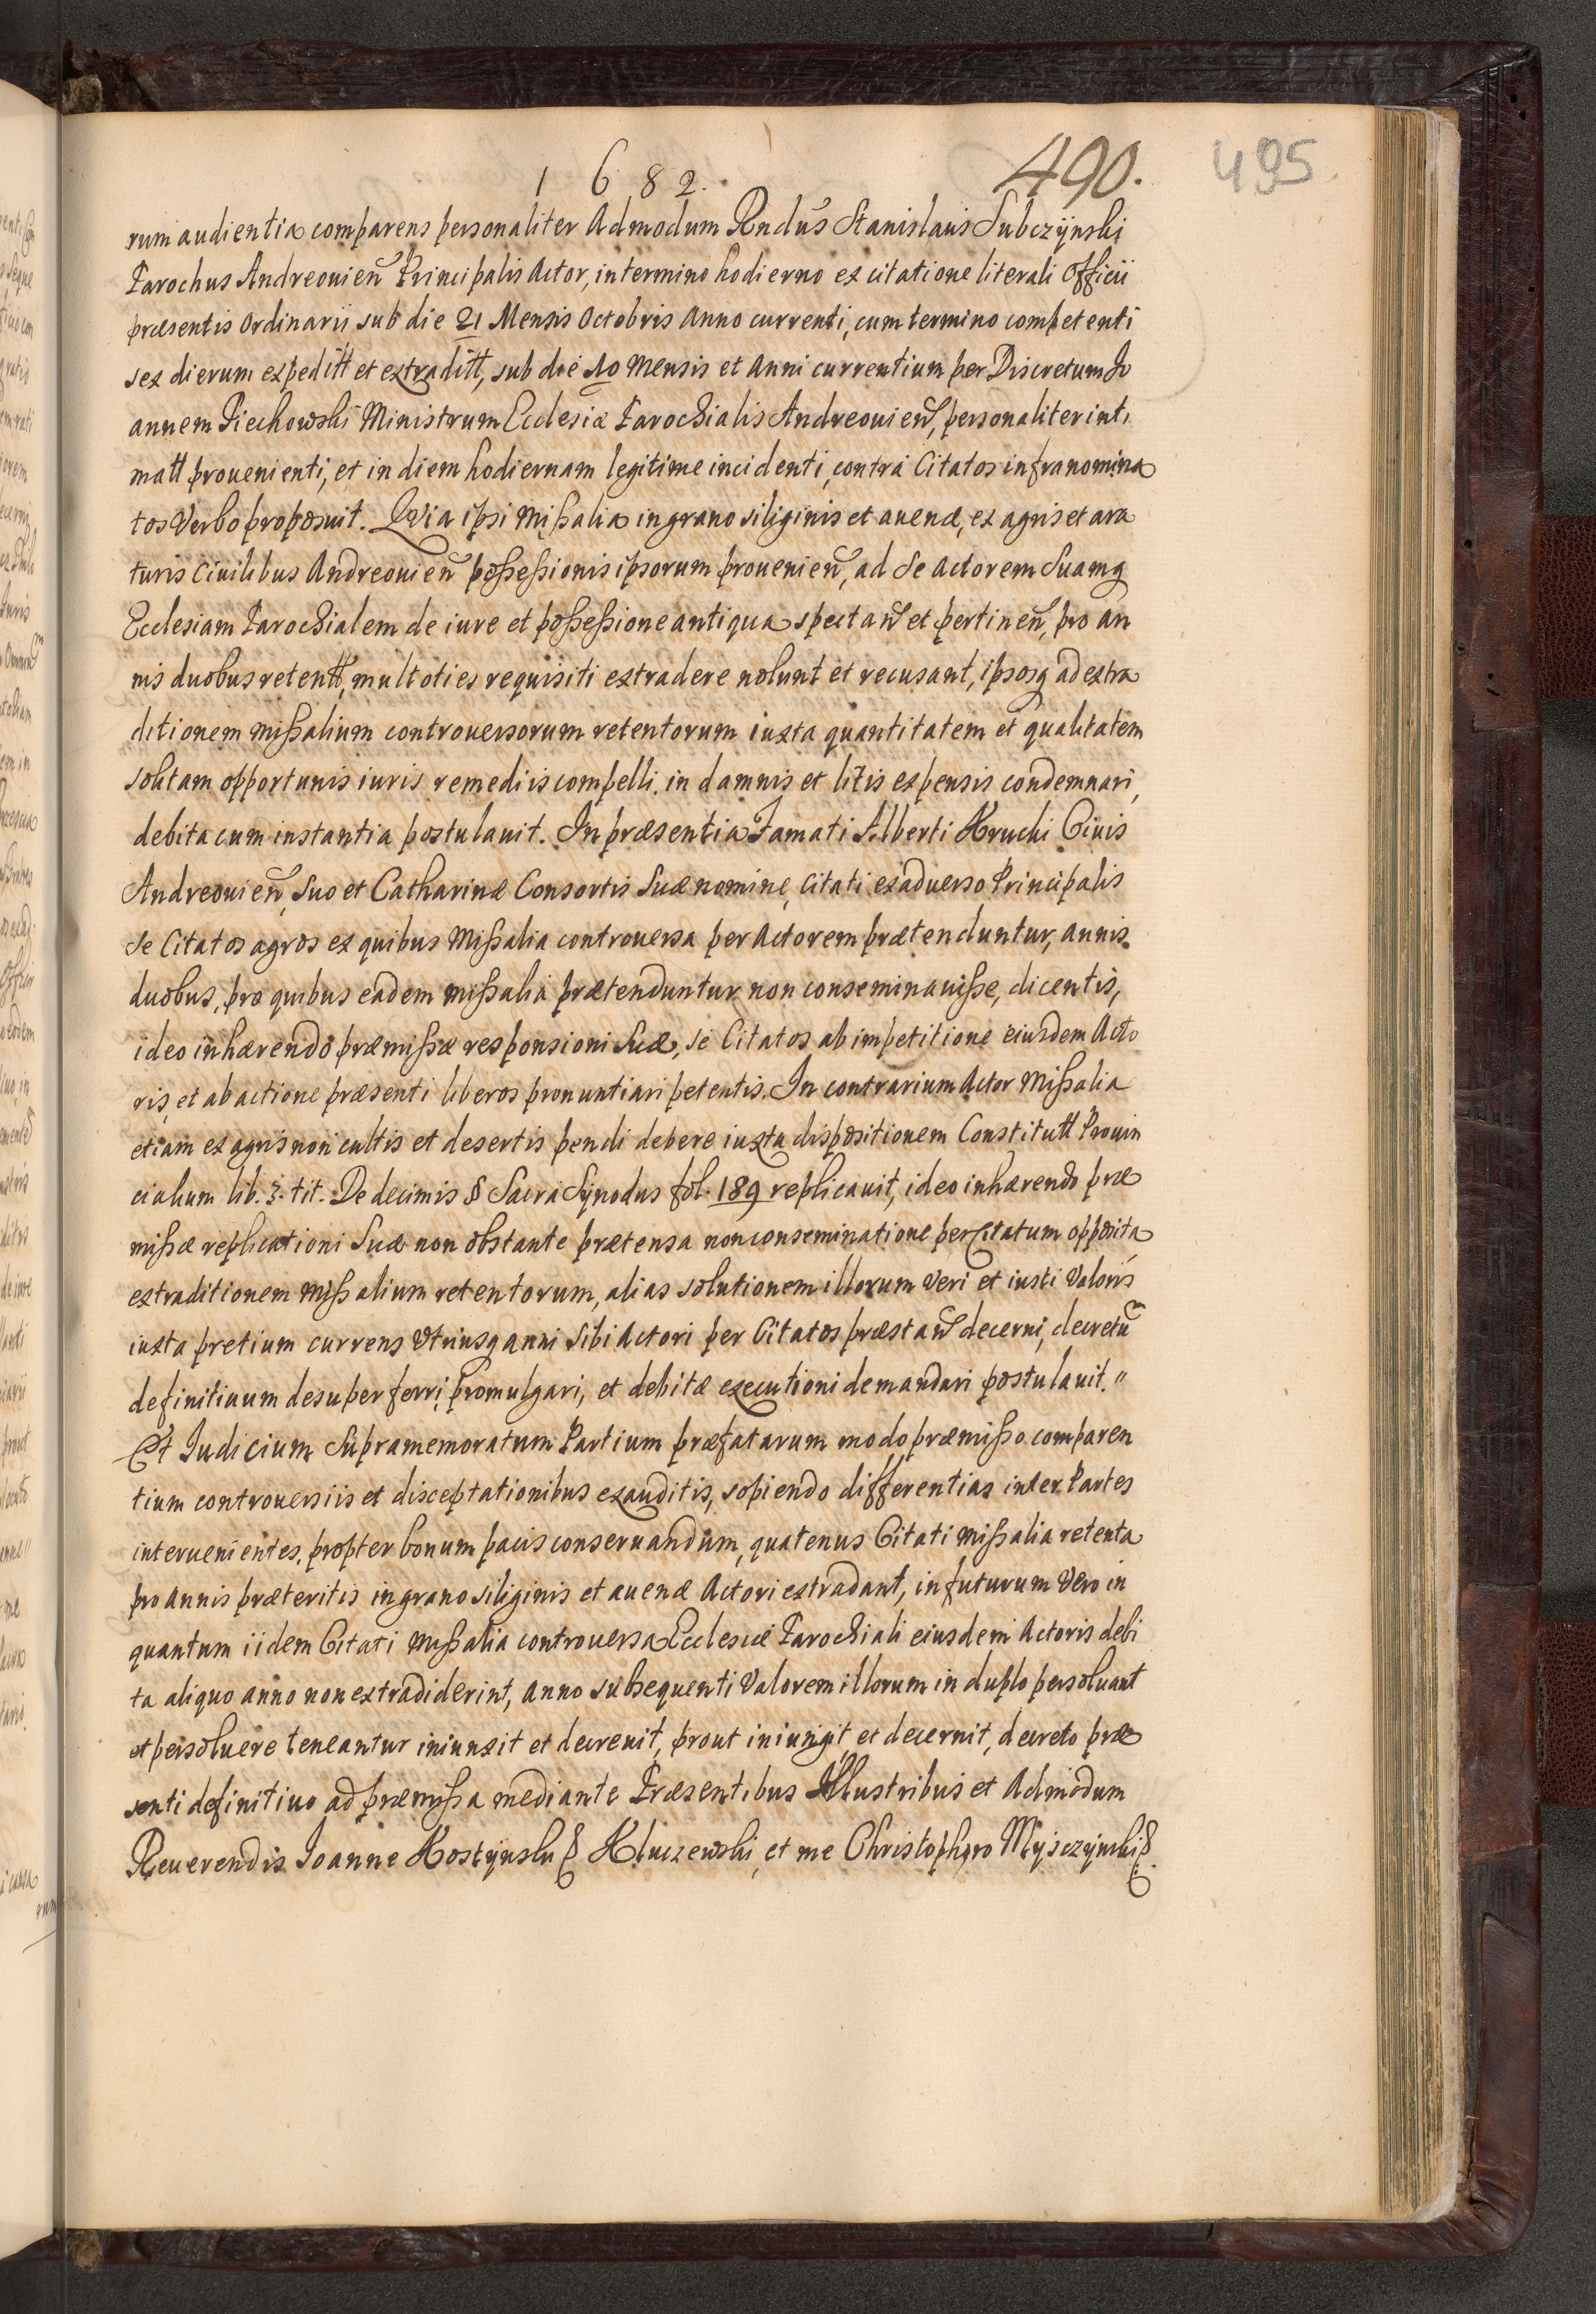 1682.
490.
495
rum audientia comparens personaliter Admodum Rndus Stanislaus Subczÿnski
Parochus Andreouien Principalis Actor, in termino hodierno ex citatione literali Officii
præsentis Ordinarii sub die 21 Mensis Octobris Anno currenti, cum termino competenti
sex dierum expeditt et extraditt, sub die 10 Mensis et Anni currentium per Discretum Jo
annem Piechowski Ministrum Ecclesiæ Parochialis Andreouien, personaliter inti
matt prouenienti, et in diem hodiernam legitime incidenti, contra Citatos infranomina
tos Verbo proposuit. Quia ipsi Mißalia in grano siliginis et auenæ, ex agris et ara
turis Ciuilibus Andreouien poßeßionis ipsorum prouenien, ad se Actorem Suamq
Ecclesiam Parochialem de iure et poßeßione antiqua spectan et pertinen, pro an
nis duobus retentt, multoties requisiti extradere nolunt et recusant, ipsosq ad extra
ditionem mißalium controuersorum retentorum iuxta quantitatem et qualitatem
solitam opportunis iuris remediis compelli, in damnis et litis expensis condemnari,
debita cum instantia postulauit. In præsentia Famati Alberti Kruchi Ciuis
Andreouien, suo et Catharinæ Consortis Suæ nomine, Citati ex aduerso Principalis
se Citatos agros ex quibus Mißalia controuersa per Actorem prætenduntur, annis
duobus, pro quibus eadem mißalia prætenduntur non conseminauiße, dicentis,
ideo inhærendo præmißæ responsioni Suæ, se Citatos ab impetitione eiusdem Acto
ris, et ab actione præsenti liberos pronuntiari petentis. In contrarium Actor Mißalia
etiam ex agris non cultis et desertis pendi debere iuxta dispositionem Constitutt Prouin
cialium lib. 3. tit. De decimis § Sacra Sÿnodus fol. 189 replicauit, ideo inhærendo præ
mißæ replicationi Suæ non obstante prætensa nonconseminatione per Citatum opposita
extraditionem Mißalium retentorum, alias solutionem illorum Veri et iusti Valoris
iuxta pretium currens Vtriusq anni sibi Actori per Citatos præstan decerni, decretu
definitiuum desuper ferri, promulgari, et debitæ executioni demandari postulauit. "
Et Iudicium Supramemoratum Partium præfatarum modo præmißo comparen
tium controuersiis et disceptationibus exauditis, sopiendo differentias inter Partes
interuenientes, propter bonum pacis conseruandum, quatenus Citati mißalia retenta
pro Annis præteritis in grano siliginis et auenæ Actori extradant, in futurum Vero in
quantum iidem Citati mißalia controuersa Ecclesiæ Parochiali eiusdem Actoris debi
ta aliquo anno non extradiderint, Anno subsequenti Valorem illorum in duplo persoluant
et persoluere teneantur iniunxit et decreuit, prout iniungit et decernit, decreto præ
senti definitiuo ad præmißa mediante Præsentibus Illustribus et Admodum
Reuerendis Ioanne Kostÿnski & Kluczewski, et me Christophoro Mÿsczÿnski &